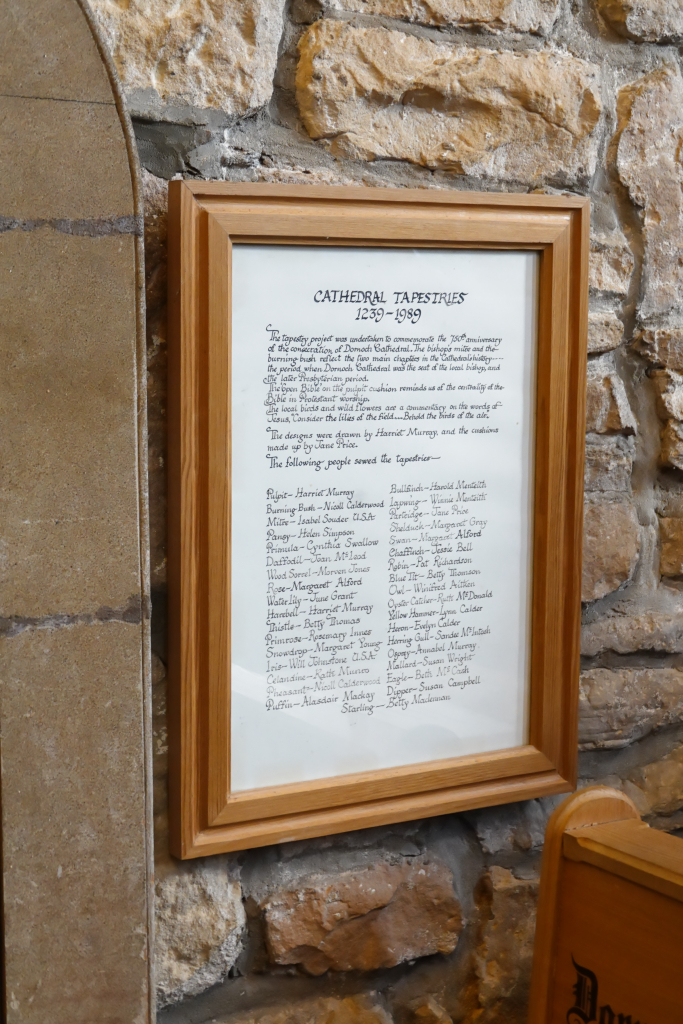 CATHEDRAL TAPESTRIES
1239-1989
The tapestry project was undertaken to commemorate the 750th anniversary
of the consecration of Dornoch Cathedral. The bishop's mitre and the
burning bush reflect the two main chapters in the Cathedral's history....
the period when Dornoch Cathedral was the seat of the local bishop, and
the later Presbyterian period.
The open Bible on the pulpit cushion reminds us of the centrality of the
Bible in Protestant worship.
The local birds and wild flowers are a commentary on the words of
Jesus, 'Consider the lilies of the field.... Behold the birds of the air.
The designs were drawn by Harriet Murray, and the cushions
made up by Jane Price.
The following people sewed the tapestries—
Pulpit-Harriet Murray
Burning Bush-Nicoll Calderwood
Mitre-Isabel Souder U.S.A.
Pansy-Helen Simpson
Primula-Cynthia Swallow
Daffodil-Joan McLeod
Wood Sorrel-Morven Jones
Rose-Margaret Alford
Water lily-June Grant
Harebell-Harriet Murray
Thistle-Betty Thomas
Primrose-Rosemary Innes
Snowdrop-Margaret Young
Iris-Will Johnstone U.S.A.
Celandine-Kath Munro
Pheasants-Nicoll Calderwood
Puffin-Alasdair Mackay
Bullfinch-Harold Menteith
Lapwing-Winnie Menteith
Partridge-Jane Price
Shelduck-Margaret Gray
Swan-Margaret Alford
Chaffinch-Jessie Bell
Robin-Pat Richardson
Blue Tit-Betty Thomson
Owl-Winifred Aitken
Oyster Catcher-Ruth McDonald
Yellow Hammer-Lynn Calder
Heron-Evelyn Calder
Herring Gull-Sandie McIntosh
Osprey-Annabel Murray
Mallard-Susan Wright
Eagle-Beth McCash
Dipper-Susan Campbell
Starling-Betty Maclennan